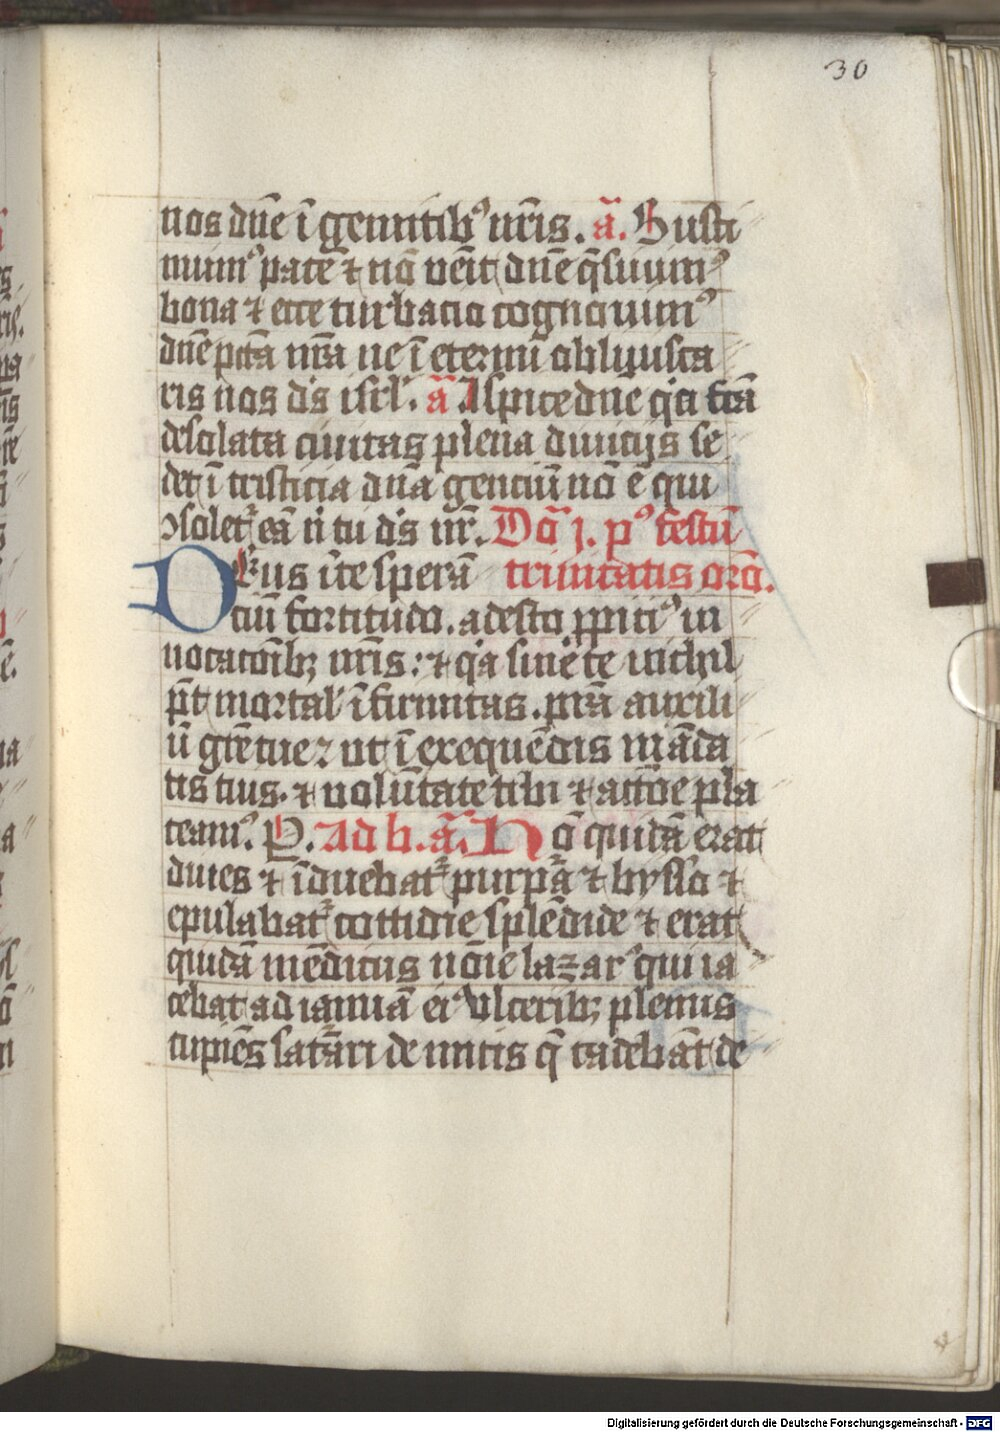 30
nos dn̄e ī gemitibꝰ nr̄is. ā. Susti
nuimꝰ pacē ⁊ nō vēit dn̄e q̄siuimꝰ
bona ⁊ ecce turbacio cognouimꝰ
dn̄e pctā nr̄a ne ī eternū obliuisca
ris nos ds̄ isrl̄. ā Aspice dn̄e qa fcā
desolata ciuitas plena diuicijs se
det ī tristicia dn̄a genciū nō ē qui
ꝯsolet᷑ eā n̄ tu ds̄ nr̄. Dōa j. pꝰ festū
Deus ī te sperā trinitatis orō.
ciū fortitudo. adesto ꝓpitiꝰ in
uocacōib; nr̄is: ⁊ qa sine te nichil
pt̄ mortal̄ īfirmitas. pr̄a auxili
ū grē tue ⁊ ut ī exequēdis mādā
tis tuis. ⁊ volūtate tibi ⁊ actōe pla
ceamꝰ. P. Ad b. ā. Hō quidā erat
diues ⁊ īduebat᷑ purpᷓa ⁊ bysso ⁊
epulabat᷑ cottidie splēdide ⁊ erat
quidā mēdicus nōie lazarꝰ qui ia
cebat ad ianuā eiꝰ vlcerib; plenus
cupiēs satᷓari de micis q̄ cadebāt de
Digitalisierung gefördert durch die Deutsche Forschungsgemeinschaft - DFG